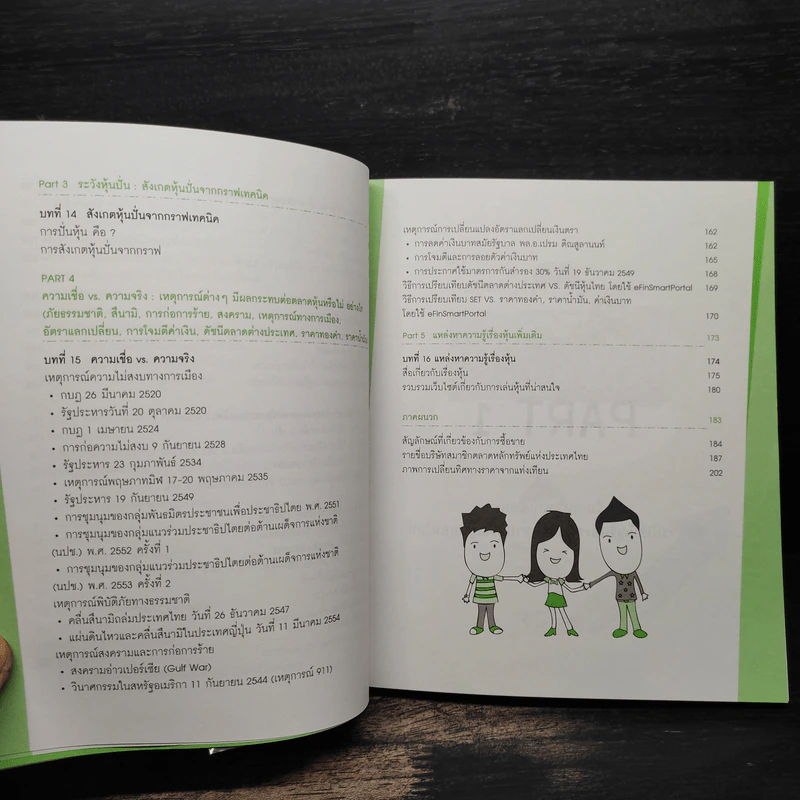 Part 3 ระวังหุ้นปั่น : สังเกตหุ้นปั่นจากกราฟเทคนิค
บทที่ 14 สังเกตหุ้นปั่นจากกราฟเทคนิค
การปั่นหุ้น คือ ?
การสังเกตหุ้นปั่นจากกราฟ
PART 4
ความเชื่อ vs. ความจริง : เหตุการณ์ต่างๆ มีผลกระทบต่อตลาดหุ้นหรือไม่
(ภัยธรรมชาติ, สึนามิ, การก่อการร้าย, สงคราม, เหตุการณ์ทางการเมือง,
อัตราแลกเปลี่ยน, การโจมตีค่าเงิน, ดัชนีตลาดต่างประเทศ, ราคาทองคำ, ราคาน้ำมัน
บทที่ 15 ความเชื่อ vs. ความจริง
เหตุการณ์ความไม่สงบทางการเมือง
• กบฏ 26 มีนาคม 2520
• รัฐประหารวันที่ 20 ตุลาคม 2520
• กบฏ 1 เมษายน 2524
• การก่อความไม่สงบ 9 กันยายน 2528
• รัฐประหาร 23 กุมภาพันธ์ 2534
• เหตุการณ์พฤษภาทมิฬ 17-20 พฤษภาคม 2535
• รัฐประหาร 19 กันยายน 2549
• การชุมนุมของกลุ่มพันธมิตรประชาชนเพื่อประชาธิปไตย พ.ศ. 2551
• การชุมนุมของกลุ่มแนวร่วมประชาธิปไตยต่อต้านเผด็จการแห่งชาติ
(นปช.) พ.ศ. 2552 ครั้งที่ 1
• การชุมนุมของกลุ่มแนวร่วมประชาธิปไตยต่อต้านเผด็จการแห่งชาติ
(นปช.) พ.ศ. 2553 ครั้งที่ 2
เหตุการณ์พิบัติภัยทางธรรมชาติ
• คลื่นสึนามิถล่มประเทศไทย วันที่ 26 ธันวาคม 2547
• แผ่นดินไหวและคลื่นสึนามิในประเทศญี่ปุ่น วันที่ 11 มีนาคม 2554
เหตุการณ์สงครามและการก่อการร้าย
• สงครามอ่าวเปอร์เซีย (Gulf War)
• วินาศกรรมในสหรัฐอเมริกา 11 กันยายน 2544 (เหตุการณ์ 911)
เหตุการณ์การเปลี่ยนแปลงอัตราแลกเปลี่ยนเงินตรา 162
• การลดค่าเงินบาทสมัยรัฐบาล พล.อ.เปรม ติณสูลานนท์ 162
• การโจมตีและการลอยตัวค่าเงินบาท 165
• การประกาศใช้มาตรการกันสำรอง 30% วันที่ 19 ธันวาคม 2549 168
วิธีการเปรียบเทียบดัชนีตลาดต่างประเทศ VS. ดัชนีหุ้นไทย โดยใช้ eFinSmartPortal 169
วิธีการเปรียบเทียบ SET VS. ราคาทองคำ, ราคาน้ำมัน, ค่าเงินบาท
โดยใช้ eFinSmartPortal 170
Part 5 แหล่งหาความรู้เรื่องหุ้นเพิ่มเติม 173
บทที่ 16 แหล่งหาความรู้เรื่องหุ้น 174
สื่อเกี่ยวกับเรื่องหุ้น 175
รวบรวมเว็บไซต์เกี่ยวกับการเล่นหุ้นที่น่าสนใจ 180
ภาคผนวก 183
สัญลักษณ์ที่เกี่ยวข้องกับการซื้อขาย 184
รายชื่อบริษัทสมาชิกตลาดหลักทรัพย์แห่งประเทศไทย 187
ภาพการเปลี่ยนทิศทางราคาจากแท่งเทียน 202